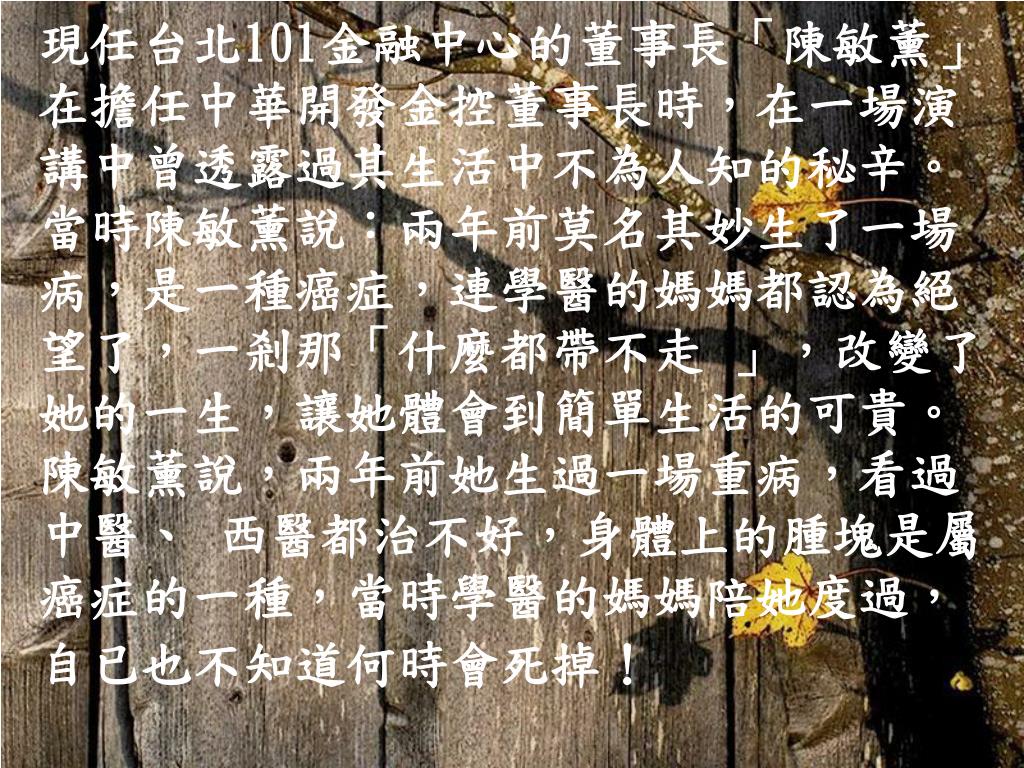 現任台北101金融中心的董事長「陳敏薰」
在擔任中華開發金控董事長時，在一場演
講中曾透露過其生活中不為人知的秘辛。
當時陳敏薰說：兩年前莫名其妙生了一場
病，是一種癌症，連學醫的媽媽都認為絕
望了，一剎那「什麼都帶不走 」，改變了
她的一生，讓她體會到簡單生活的可貴。
陳敏薰說，兩年前她生過一場重病，看過
中醫、 西醫都治不好，身體上的腫塊是屬
癌症的一種，當時學醫的媽媽陪她度過，
自已也不知道何時會死掉！